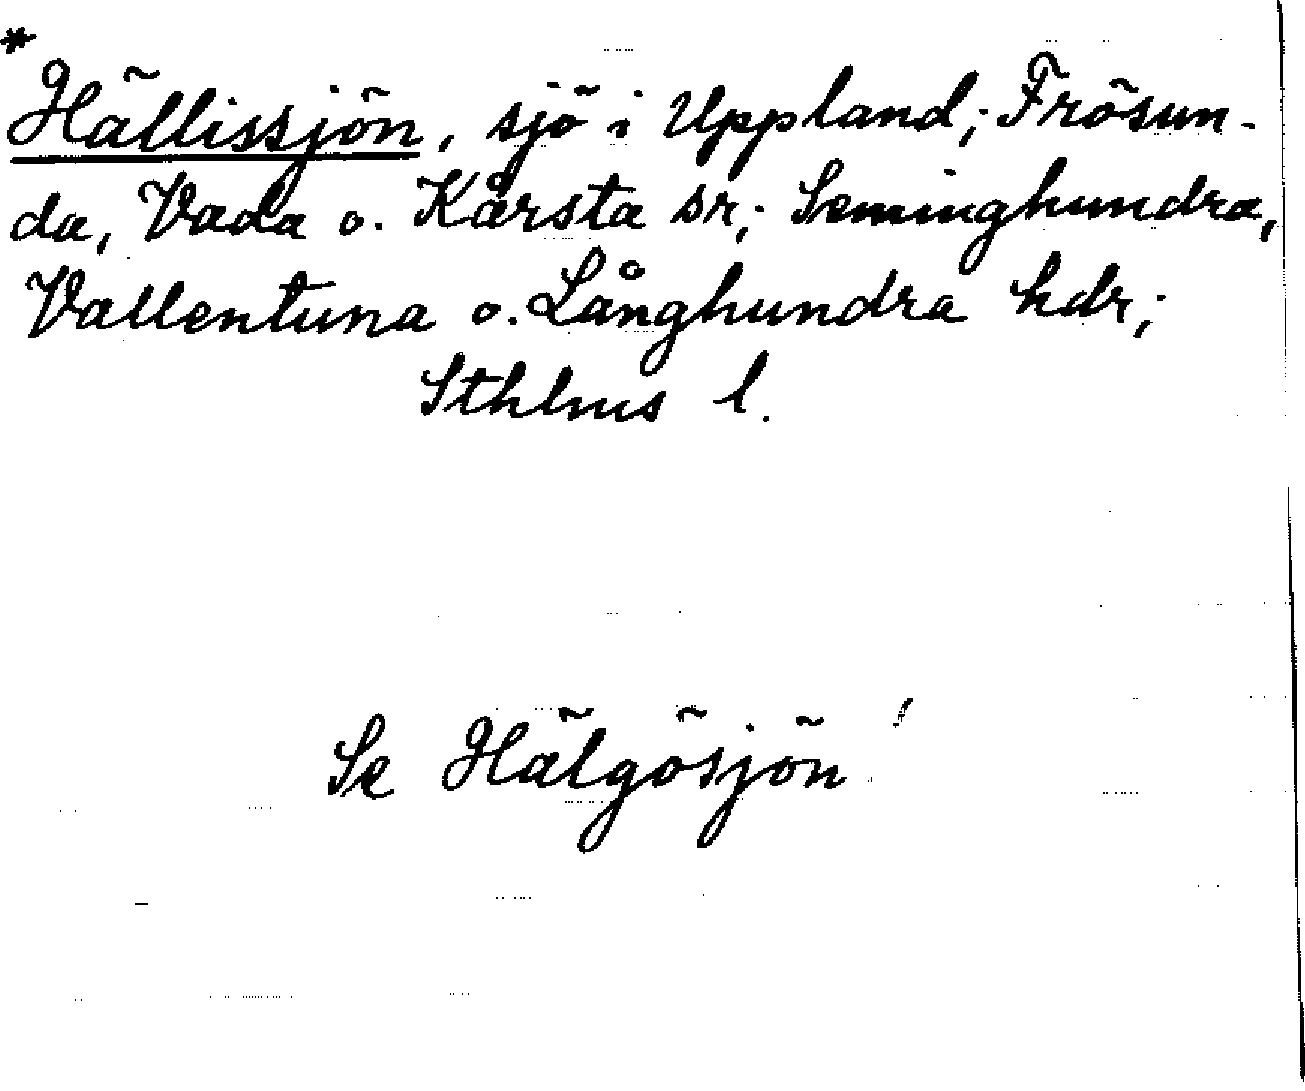 * Hällissjön, sjö i Uppland; Frösun-
da, Vada o. Kårsta sr; Seminghundra,
Vallentuna o. Långhundra hdr;
Sthlms l.
Se Hälgösjön!